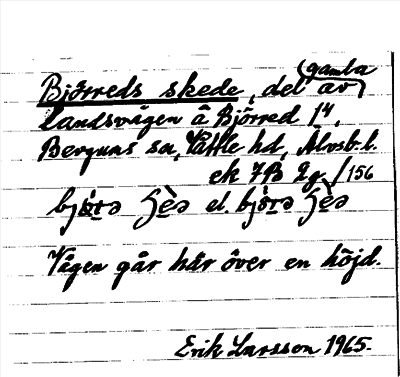 Björreds skede, del av gamla
landsvägen å Björred 1⁴,
Bergums sn, Vättle hd, Älvsb. l.
ek 7B 2g /156
el.
Vägen går här över en höjd.
Erik Larsson 1965.